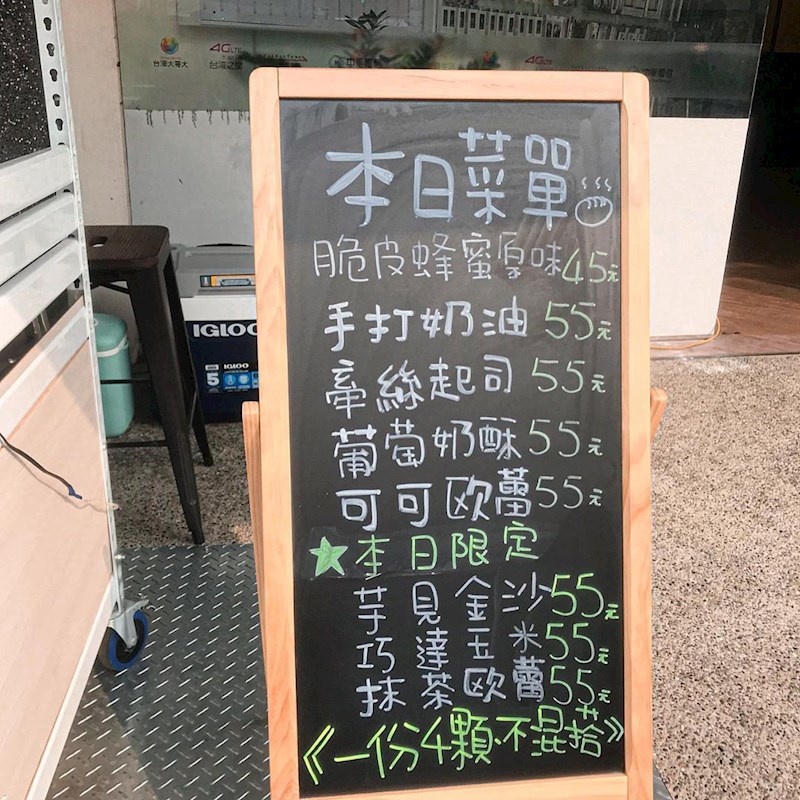 台灣大哥大
4G LTE
台灣之星
IGLOO
IGLOO
5
本日菜單
脆皮蜂蜜原味45元
手打奶油 55元
牽絲起司 55元
葡萄奶酥55元
可可欧蕾55元
★本日限定
芋見金沙55元
巧達玉米55元
抹茶欧蕾55元
《一份4顆·不混搭》